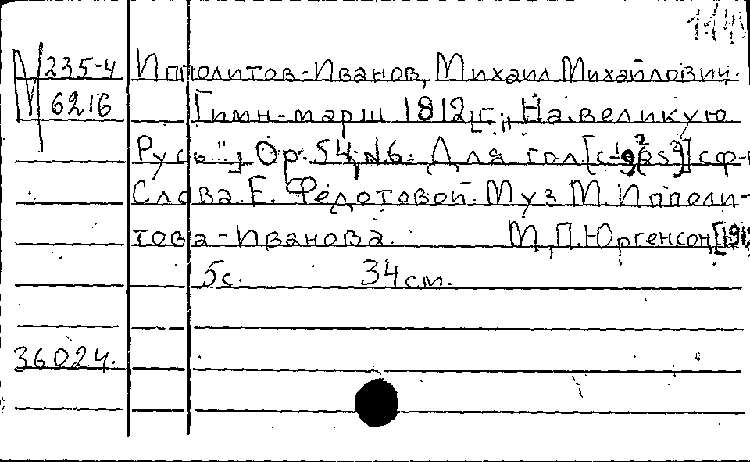 М 235-4 Ипполитов-Иванов, Михаил Михайлович.
6216 Гимн-марш 1812 [г. „На великую
Русь"] Op. 54, N6. Для гол с ф-
Слова Е. Федотовой. Муз М. Ипполи-
това-Иванова. М., П. Юргенсон,
5с. 34 см.
36024.